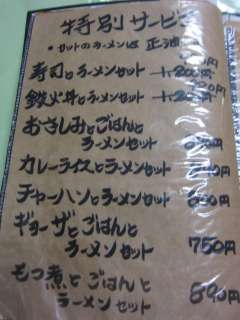 特別サービス
・セットのラーメンは 正油
寿司とラーメンセット
鉄火丼とラーメンセット
おさしみとごはんと
ラーメンセット
カレーライスとラーメンセット
チャーハンとラーメンセット
ギョーザとごはんと
ラーメンセット 750円
もつ煮とごはんと
ラーメンセット 890円